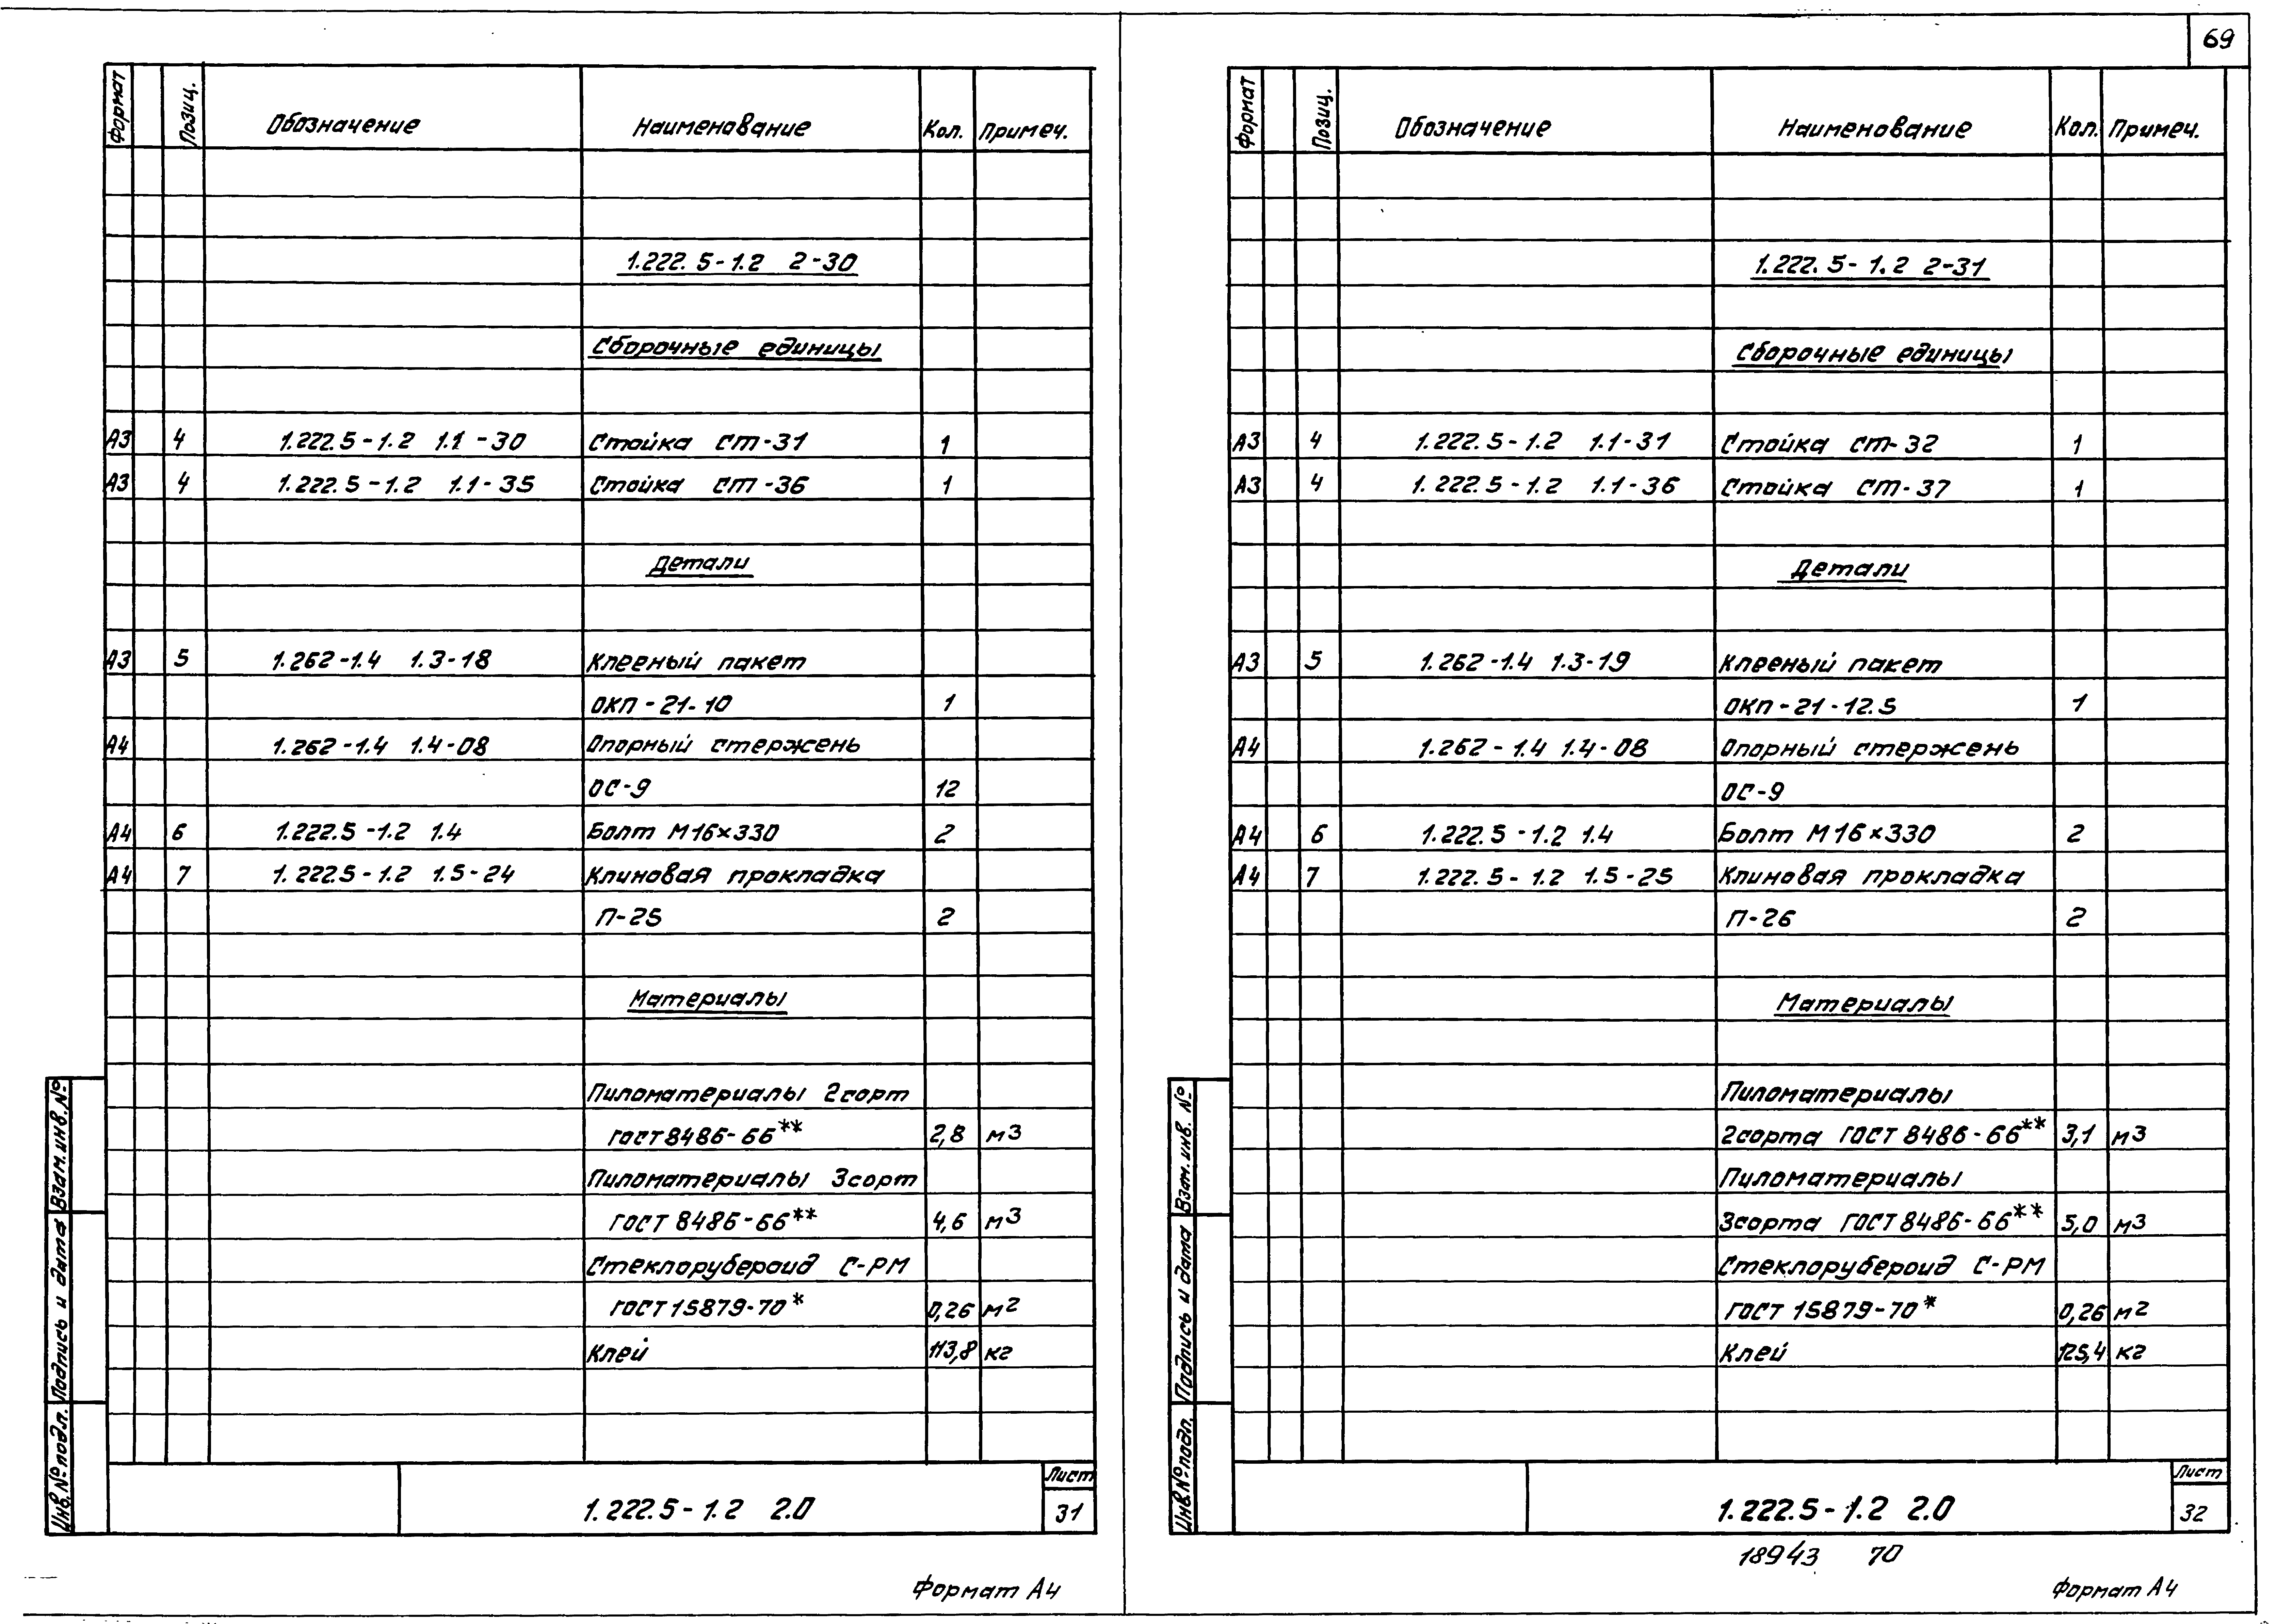 69
Формат Позиц. Обозначение Наименование Кол. Примеч.
1.222.5-1.2 2-30
Сборочные единицы
А3 4 1.222.5-1.2 1.1-30 Стойка СТ-31 1
А3 4 1.222.5-1.2 1.1-35 Стойка СТ-36 1
Детали
А3 5 1.262-1.4 1.3-18 Клееный пакет
ОКП-21-10 1
А4 1.262-1.4 1.4-08 Опорный стержень
ОС-9 12
А4 6 1.222.5-1.2 1.4 Болт М16×330 2
А4 7 1.222.5-1.2 1.5-24 Клиновая прокладка
П-25 2
Материалы
Пиломатериалы 2сорт
ГОСТ 8486-66** 2,8 м3
Пиломатериалы 3сорт
ГОСТ 8486-66** 4,6 м3
Стеклорубероид С-РМ
ГОСТ 15879-70* 0,26 м2
Клей 113,8 кг
Взам. инв. №
Подпись и дата
Инв. № подл.
1.222.5-1.2 2.0
Лист
31
Формат А4
Формат Позиц. Обозначение Наименование Кол. Примеч.
1.222.5-1.2 2-31
Сборочные единицы
А3 4 1.222.5-1.2 1.1-31 Стойка СТ-32 1
А3 4 1.222.5-1.2 1.1-36 Стойка СТ-37 1
Детали
А3 5 1.262-1.4 1.3-19 Клееный пакет
ОКП-21-12.5 1
А4 1.262-1.4 1.4-08 Опорный стержень
ОС-9
А4 6 1.222.5-1.2 1.4 Болт М16×330 2
А4 7 1.222.5-1.2 1.5-25 Клиновая прокладка
П-26 2
Материалы
Пиломатериалы
2сорта ГОСТ 8486-66** 3,1 м3
Пиломатериалы
3сорта ГОСТ 8486-66** 5,0 м3
Стеклорубероид С-РМ
ГОСТ 15879-70* 0,26 м2
Клей 125,4 кг
Взам. инв. №
Подпись и дата
Инв. № подл.
1.222.5-1.2 2.0
Лист
32
18943 70
Формат А4